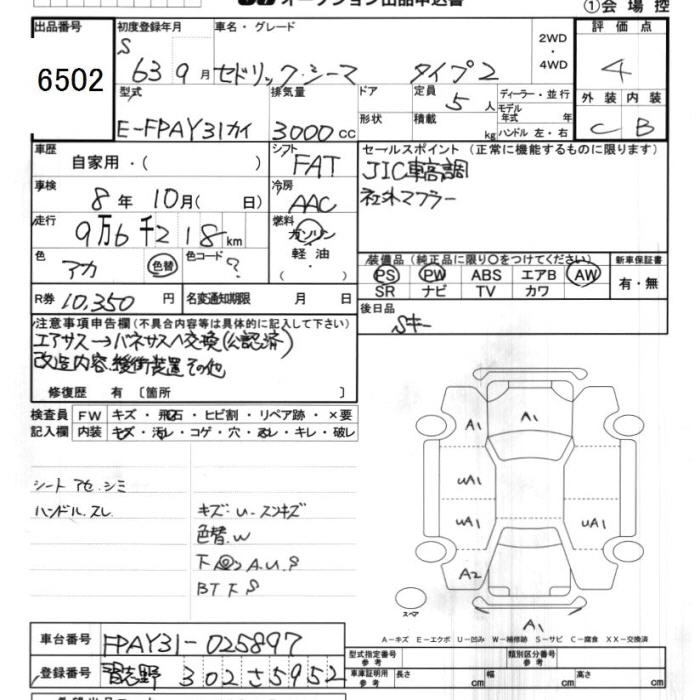 オークション出品申込書
①会場控
出品番号 初度登録年月 車名・グレード 2WD・4WD 評価点
6502 S 63 9月 セドリック・シーマ タイプ2 4
型式 排気量 ドア 定員 5人 ディーラー・並行 外装 内装
E-FPAY31カイ 3000cc 形状 積載 kg モデル年式 年 ハンドル 左・右 C B
車歴 自家用・( ) シフト FAT セールスポイント (正常に機能するものに限ります)
車検 8年10月( 日) 冷房 AAC JIC車高調
社外マフラー
走行 9万6千218km 燃料 ガソリン 軽油・( )
色 アカ 色替 色コード ?
装備品 (純正品に限り○をつけてください) 新車保証書
PS PW ABS エアB AW 有・無
SR ナビ TV カワ
R券 10,350円 名変通知期限 月 日
後日品 Sキー
注意事項申告欄 (不具合内容等は具体的に記入して下さい)
エアサス→バネサスへ交換(公認済)
改造内容、緩衝装置その他
修復歴 有 〔箇所 〕
検査員 FW キズ・飛石・ヒビ割・リペア跡・×要
記入欄 内装 キズ・汚レ・コゲ・穴・スレ・キレ・破レ
シート アセ、シミ
ハンドル、スレ
キズ・U・スンキズ
色替、W
下 A.U.S
BT下S
A1
A1
UA1
UA1
UA1
A2
A1
スペア
A−キズ E−エクボ U−凹み W−補修跡 S−サビ C−腐食 XX−交換済
車台番号 FPAY31-025897
型式指定番号 参考 類別区分番号 参考
登録番号 習志野 302 さ 5952
車庫証明用 参考 長さ cm 幅 cm 高さ cm